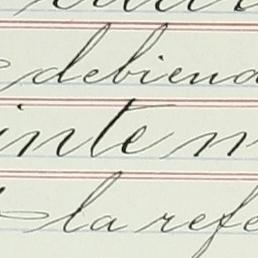 debiend
inte n
la refe